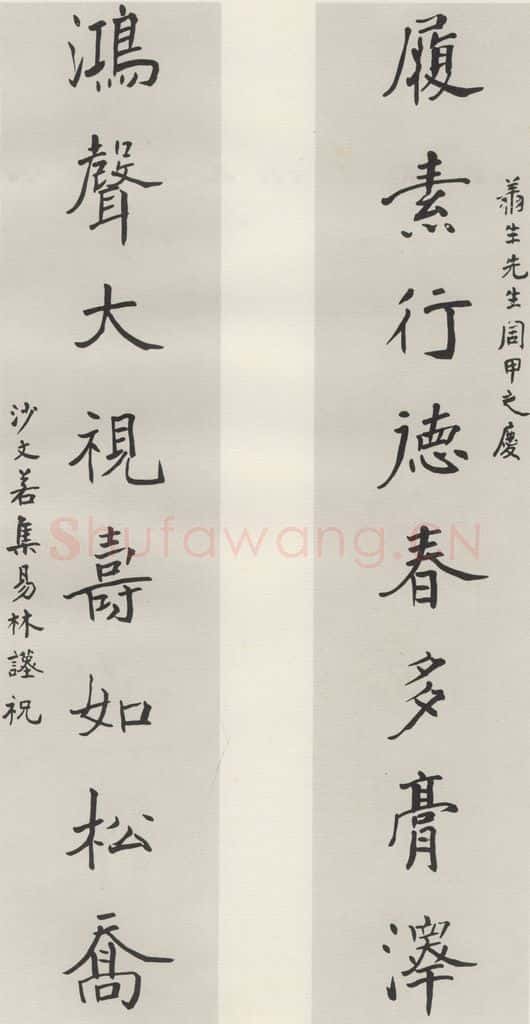 翁生先生周甲之慶
履素行德春多膏澤
鴻聲大視壽如松喬
沙文若集易林謹祝
Shufawang.CN